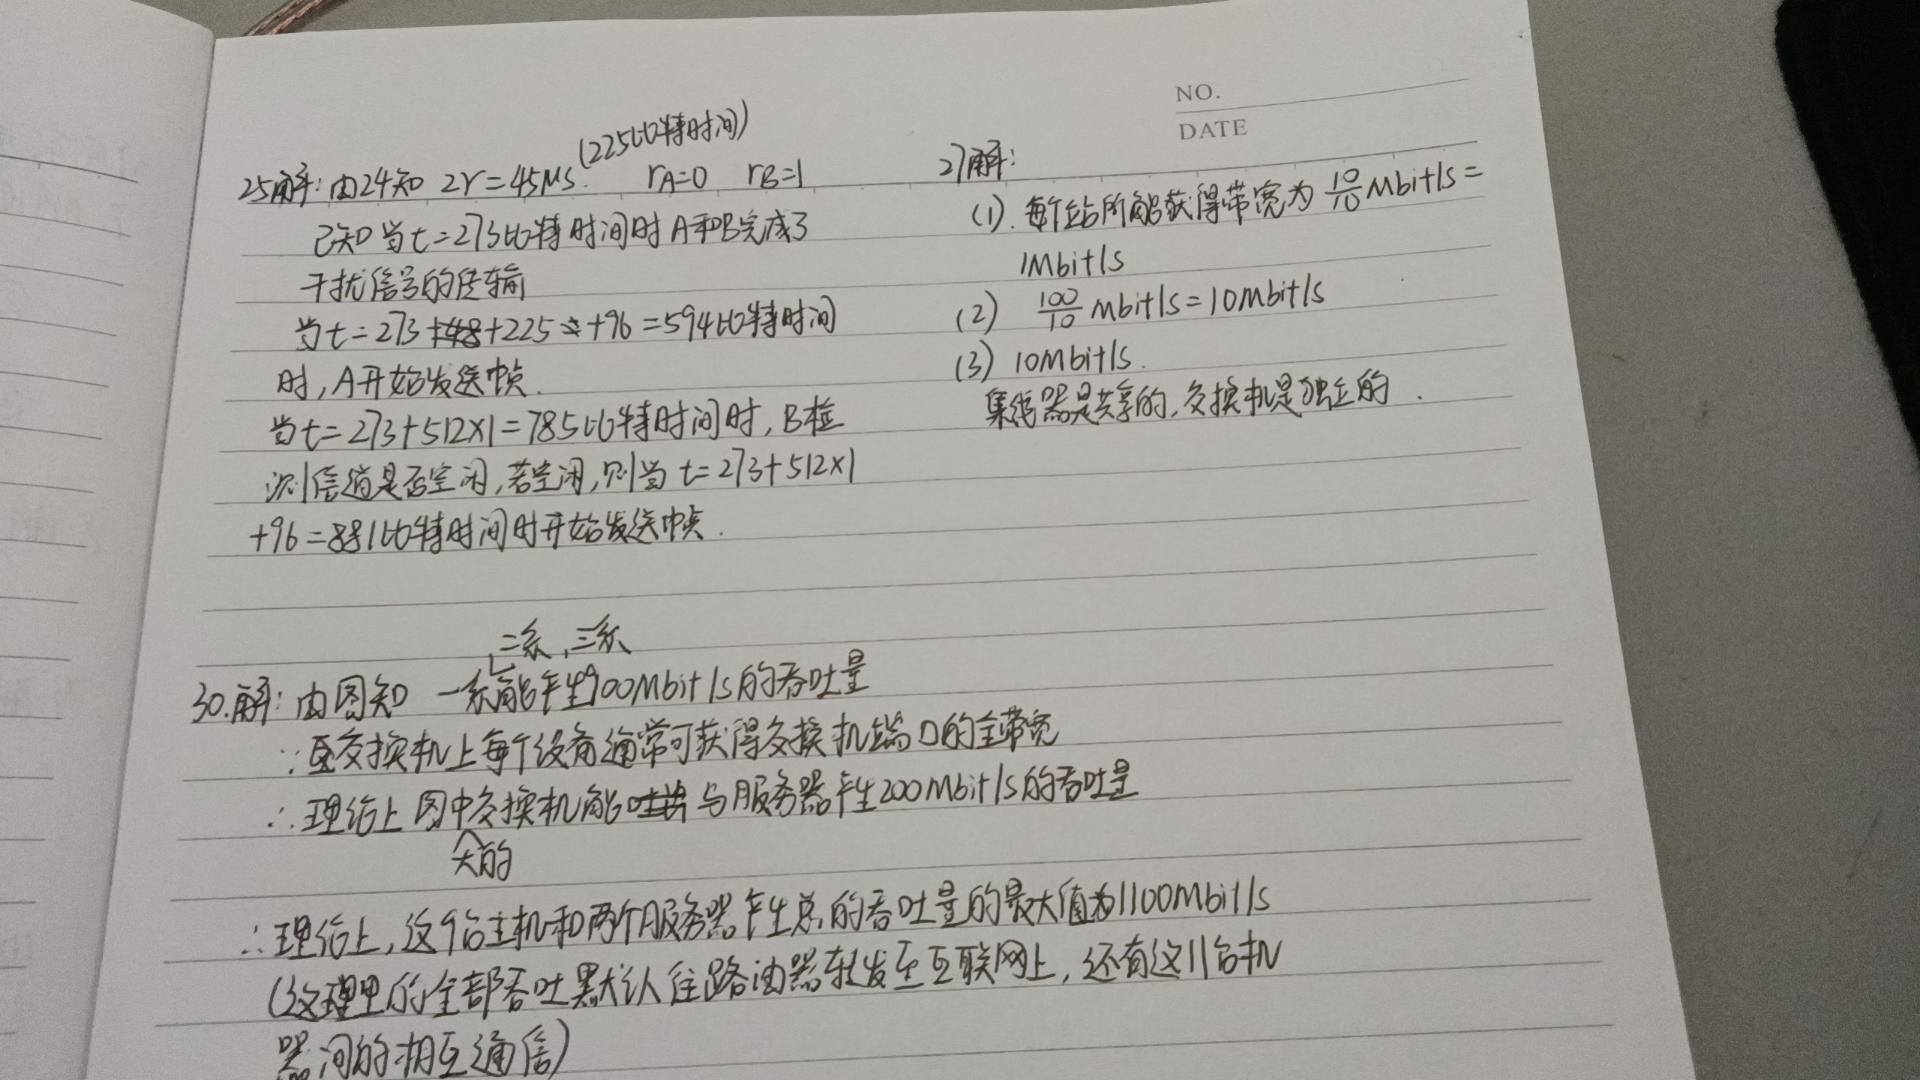 NO.
DATE
25解:由24知 2r=45μs.(225比特时间) rA=0 rB=1
已知当t=273比特时间时A和B完成了
干扰信号的传输
当t=273+48+225+96=594比特时间
时,A开始发送帧.
当t=273+512×1=785比特时间时,B检
测信道是否空闲,若空闲,则当t=273+512×1
+96=881比特时间时开始发送帧.
27解:
(1).每个站所能获得带宽为10/10Mbit/s=
1Mbit/s
(2) 100/10 Mbit/s=10Mbit/s
(3) 10Mbit/s.
集线器是共享的,交换机是独立的.
,二系,三系
30.解:由图知 一系能产生900Mbit/s的吞吐量
∵交换机上每个设备通常可获得交换机端口的全带宽
∴理论上图中交换机能与服务器产生200Mbit/s的吞吐量
大的
∴理论上,这9台主机和两个服务器产生总的吞吐量的最大值为1100Mbit/s
(这理里的全部吞吐默认往路由器转发至互联网上,还有这11台机
器间的相互通信)